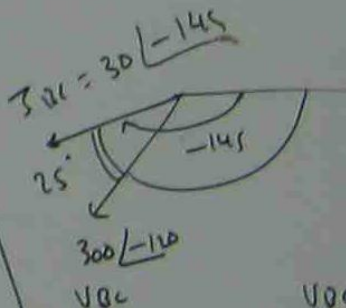 IBC = 30∠-145
-145
25°
300∠-120
VBC